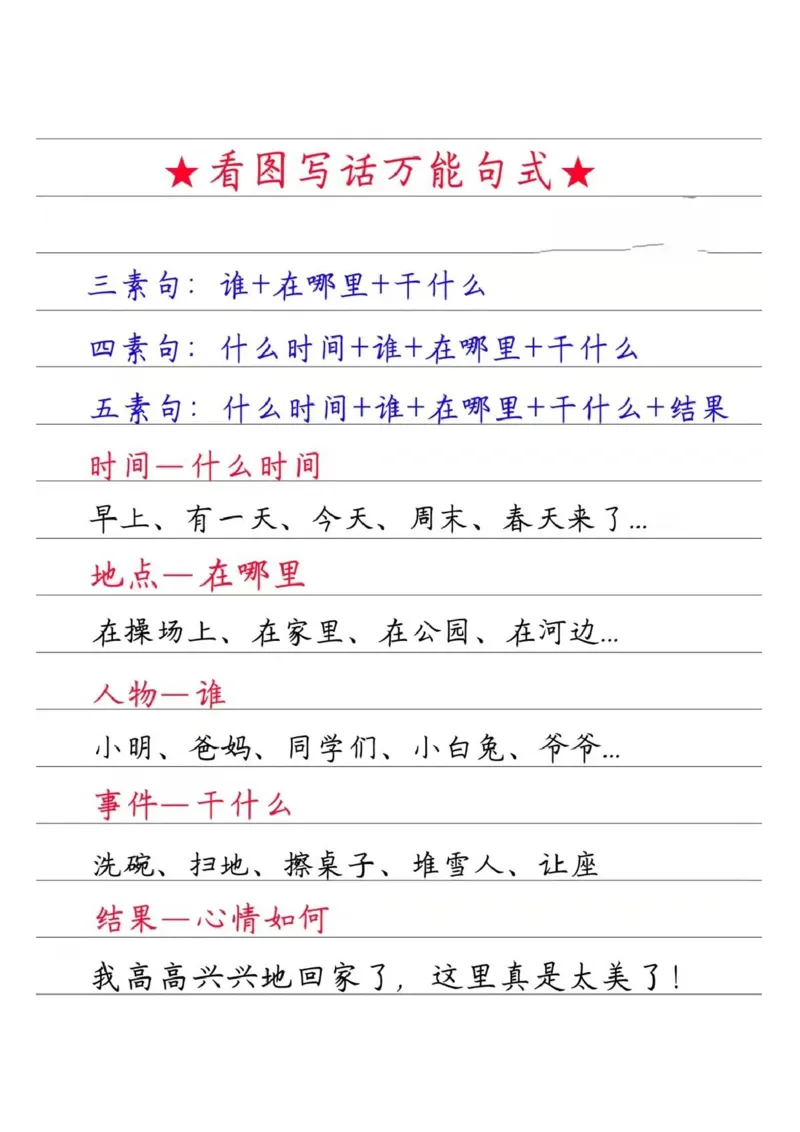 ★看图写话万能句式★
三素句：谁+在哪里+干什么
四素句：什么时间+谁+在哪里+干什么
五素句：什么时间+谁+在哪里+干什么+结果
时间—什么时间
早上、有一天、今天、周末、春天来了...
地点—在哪里
在操场上、在家里、在公园、在河边...
人物—谁
小明、爸妈、同学们、小白兔、爷爷...
事件—干什么
洗碗、扫地、擦桌子、堆雪人、让座
结果—心情如何
我高高兴兴地回家了，这里真是太美了！